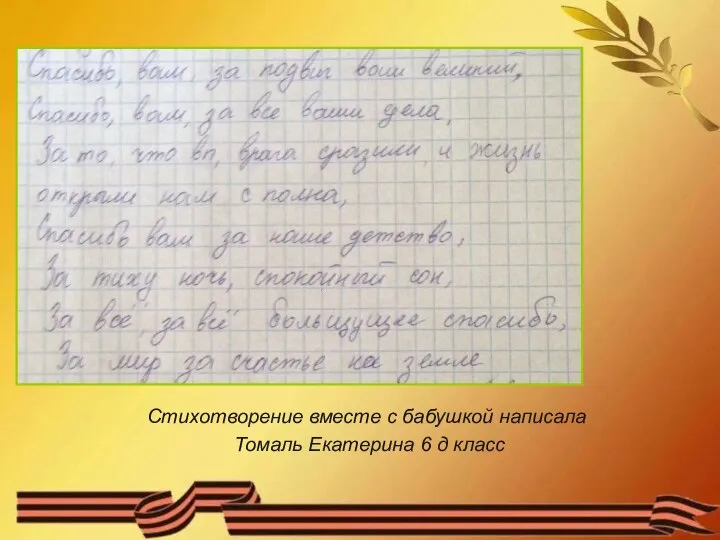 Спасибо, вам, за подвиг ваш великий,
Спасибо, вам, за все ваши дела,
За то, что вы, врага сразили, и жизнь
открыли нам с полна,
Спасибо вам за наше детство,
За тиху ночь, спокойный сон,
За всё, за всё большущее спасибо,
За мир за счастье на земле
Стихотворение вместе с бабушкой написала
Томаль Екатерина 6 д класс